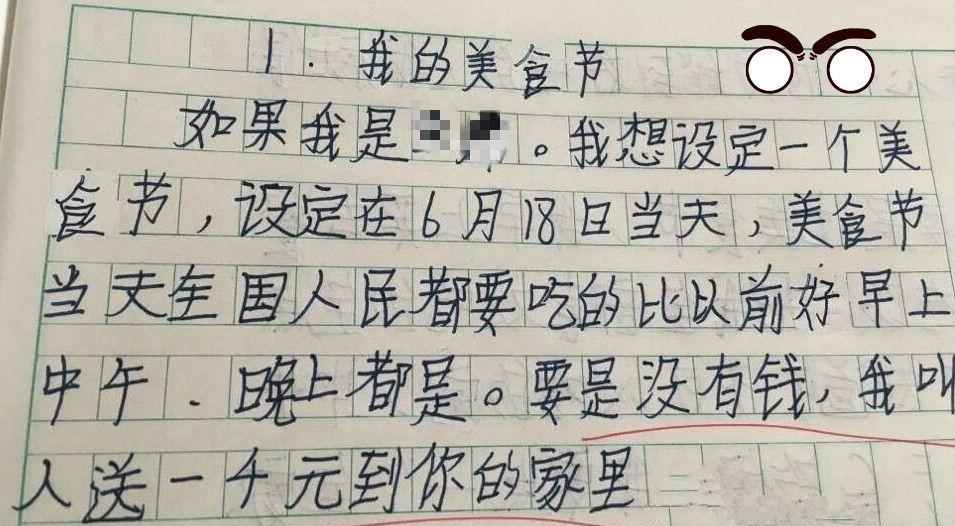 1.我的美食节
如果我是。我想设定一个美
食节，设定在6月18日当天，美食节
当天全国人民都要吃的比以前好早上
中午.晚上都是。要是没有钱，我叫
人送一千元到你的家里